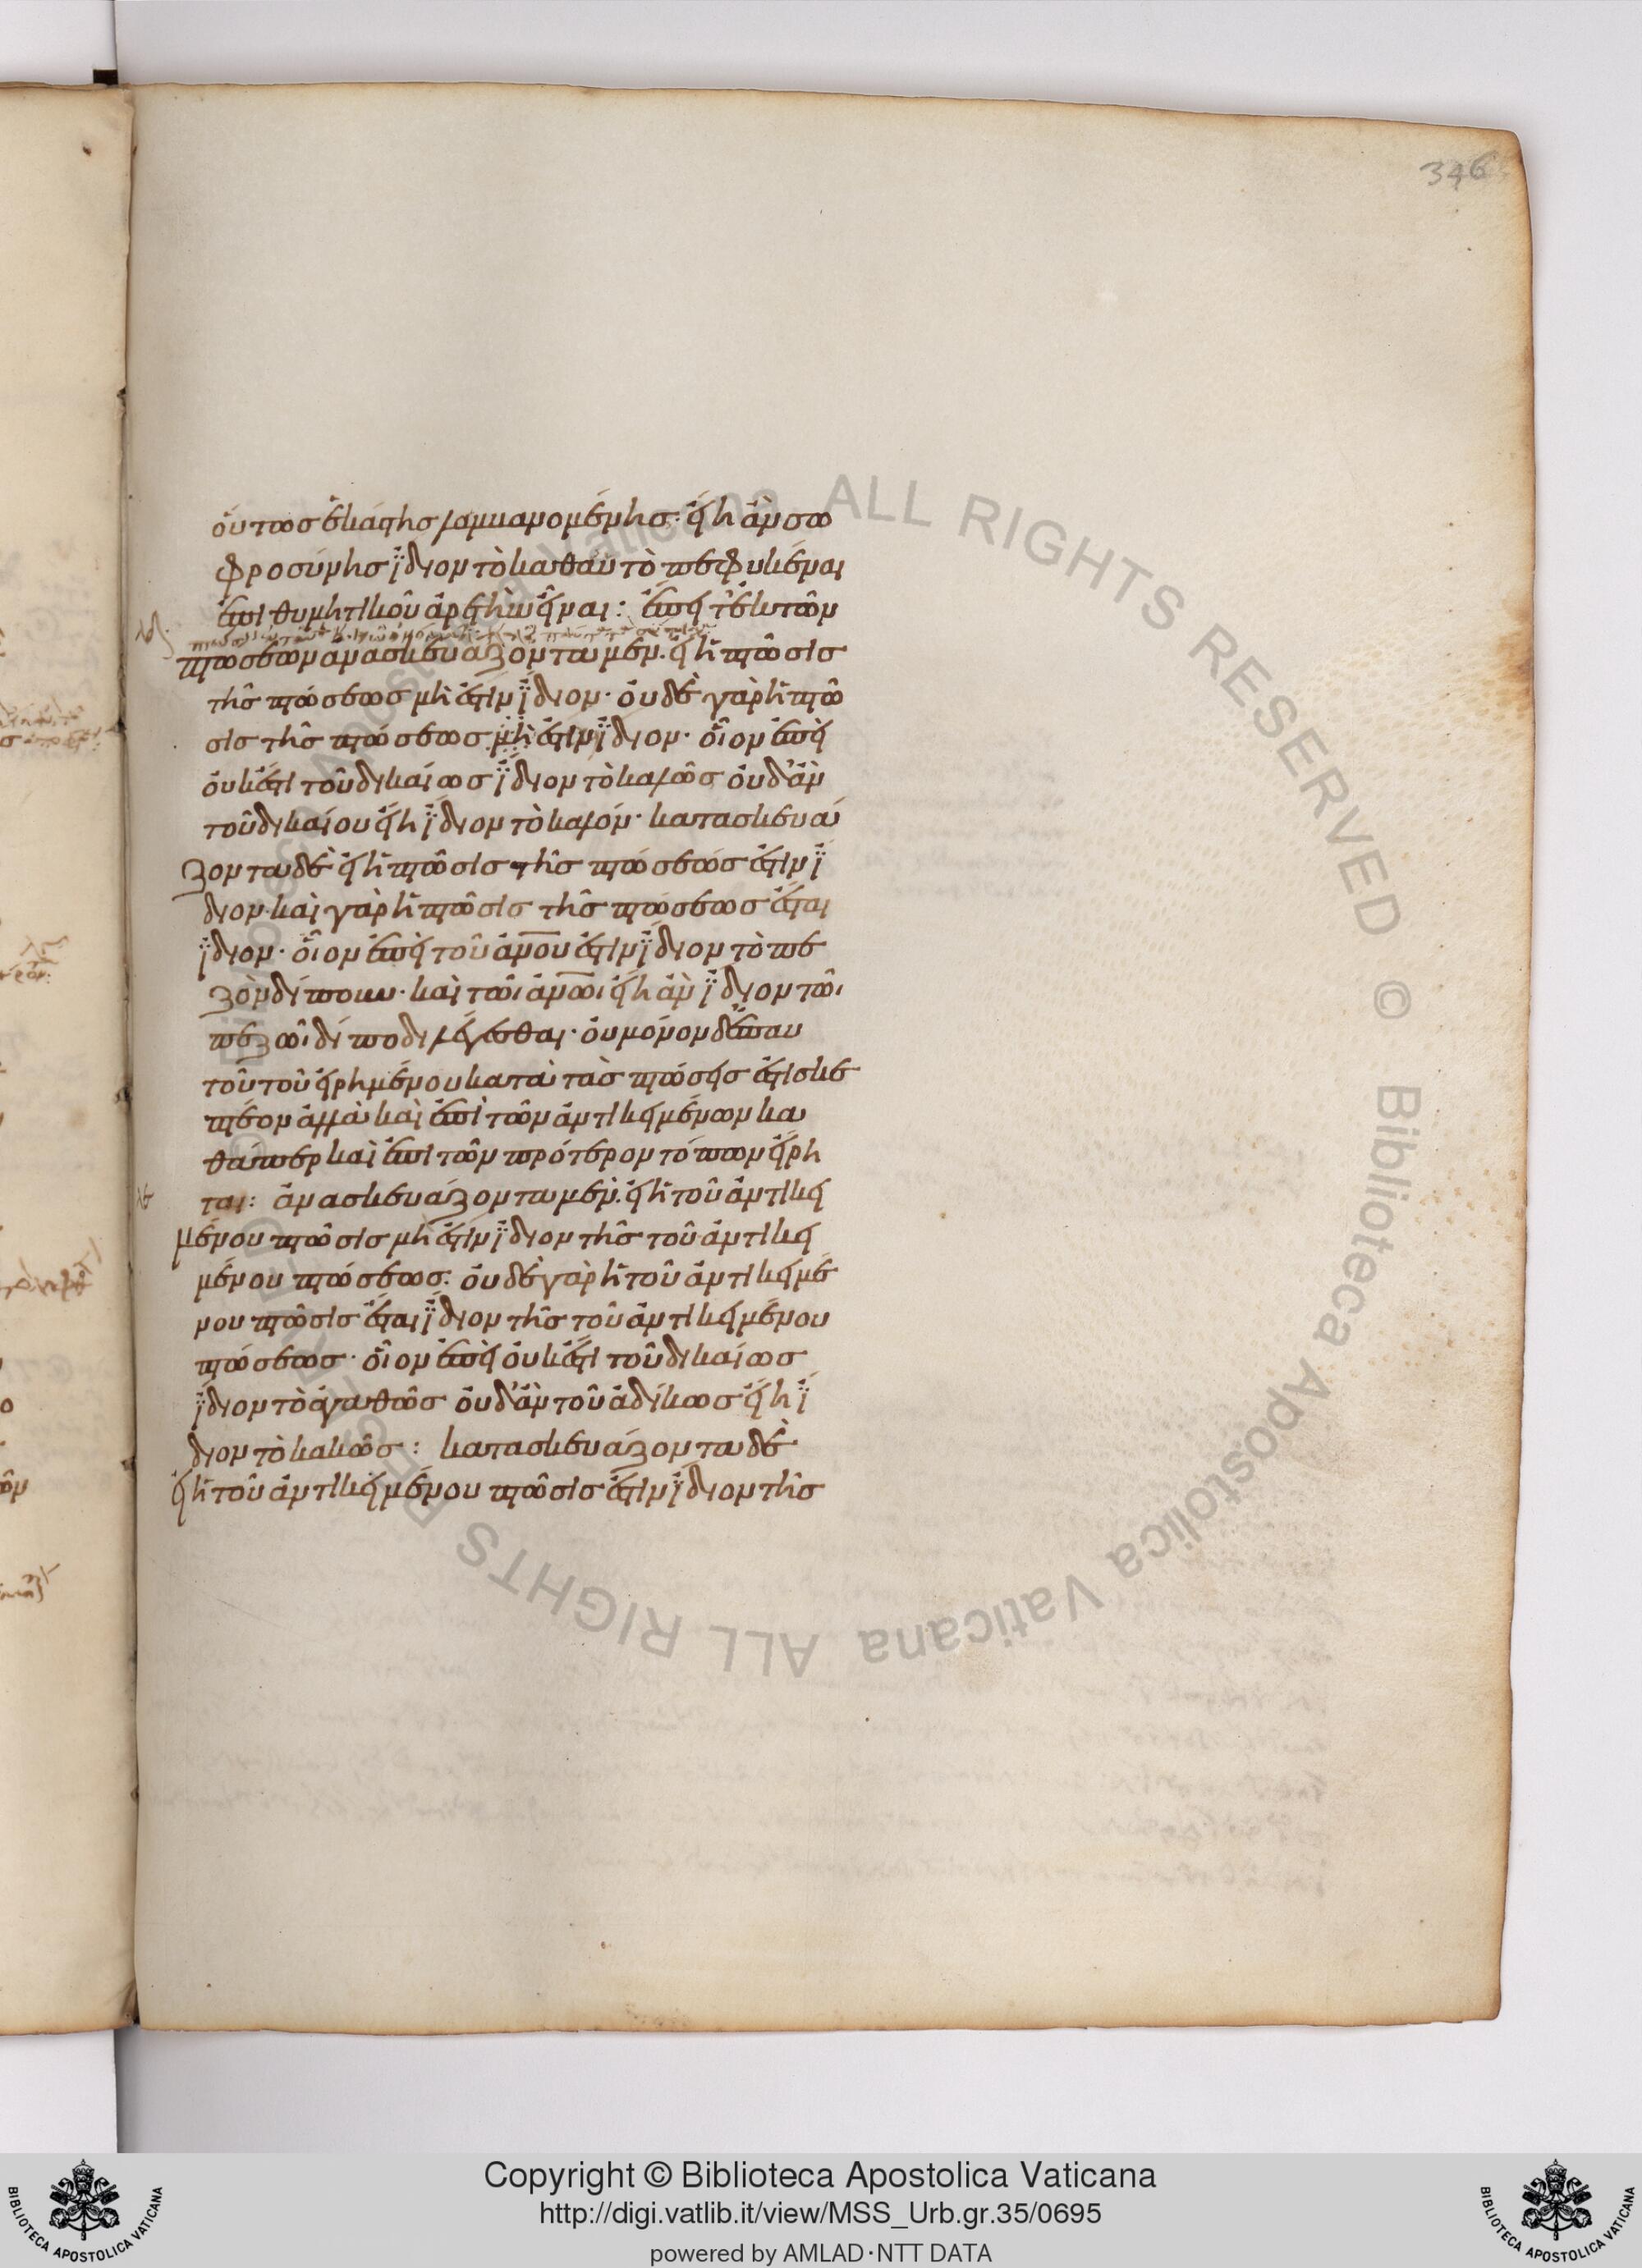 346
οὕτως ἑκάστης λαμβανομένης· εἴη ἂν σω
φροσύνης ἴδιον τὸ καθ αὑτὸ πεφυκέναι
ἐπιθυμητικοῦ ἀρετὴν εἶναι: ἔπειτ' ἐκ τῶν
πτώσεων ἀνασκευάζοντα μέν. εἰ ἡ πτῶσις
τῆς πτώσεως μή ἐστιν ἴδιον· οὐδὲ γὰρ ἡ πτῶ
σις τῆς πτώσεως μὴ ἔστιν ἴδιον· οἷον ἐπεὶ
οὐκ ἔστι τοῦ δικαίως ἴδιον τὸ καλῶς οὐδ' ἂν
τοῦ δικαίου εἴη ἴδιον τὸ καλόν· κατασκευά
ζοντα δὲ εἰ ἡ πτῶσις τῆς πτώσεώς ἐστιν ἴ
διον· καὶ γὰρ ἡ πτῶσις τῆς πτώσεως ἔσται
ἴδιον· οἷον ἐπεὶ τοῦ ἀνου ἐστὶν ἴδιον τὸ πε
ζὸν δίπουν· καὶ τῶι ἀνωι εἴη ἂν ἴδιον τῶι
πεζῶι δίποδι λέγεσθαι· οὐ μόνον δ' ἐπ αυ
τοῦ τοῦ εἰρημένου κατὰ τὰς πτώσεις ἐστὶ σκε
πτέον ἀλλὰ καὶ ἐπὶ τῶν ἀντικειμένων κα
θάπερ καὶ ἐπὶ τῶν πρότερον τόπων εἴρη
ται: ἀνασκευάζοντα μέν. εἰ ἡ τοῦ ἀντικει
μένου πτῶσις μή ἐστιν ἴδιον τῆς τοῦ ἀντικει
μένου πτώσεως: οὐδὲ γὰρ ἡ τοῦ ἀντικειμέ
νου πτῶσις ἔσται ἴδιον τῆς τοῦ ἀντικειμένου
πτώσεως· οἷον ἐπεὶ οὐκ ἔστι τοῦ δικαίως
ἴδιον τὸ ἀγαθῶς οὐδ' ἂν τοῦ ἀδίκως εἴη ἴ
διον τὸ κακῶς: κατασκευάζοντα δὲ
εἰ ἡ τοῦ ἀντικειμένου πτῶσίς ἐστιν ἴδιον τῆς
ALL RIGHTS RESERVED © Biblioteca Apostolica Vaticana
Copyright © Biblioteca Apostolica Vaticana
http://digi.vatlib.it/view/MSS_Urb.gr.35/0695
powered by AMLAD·NTT DATA
BIBLIOTECA APOSTOLICA VATICANA
BIBLIOTECA APOSTOLICA VATICANA